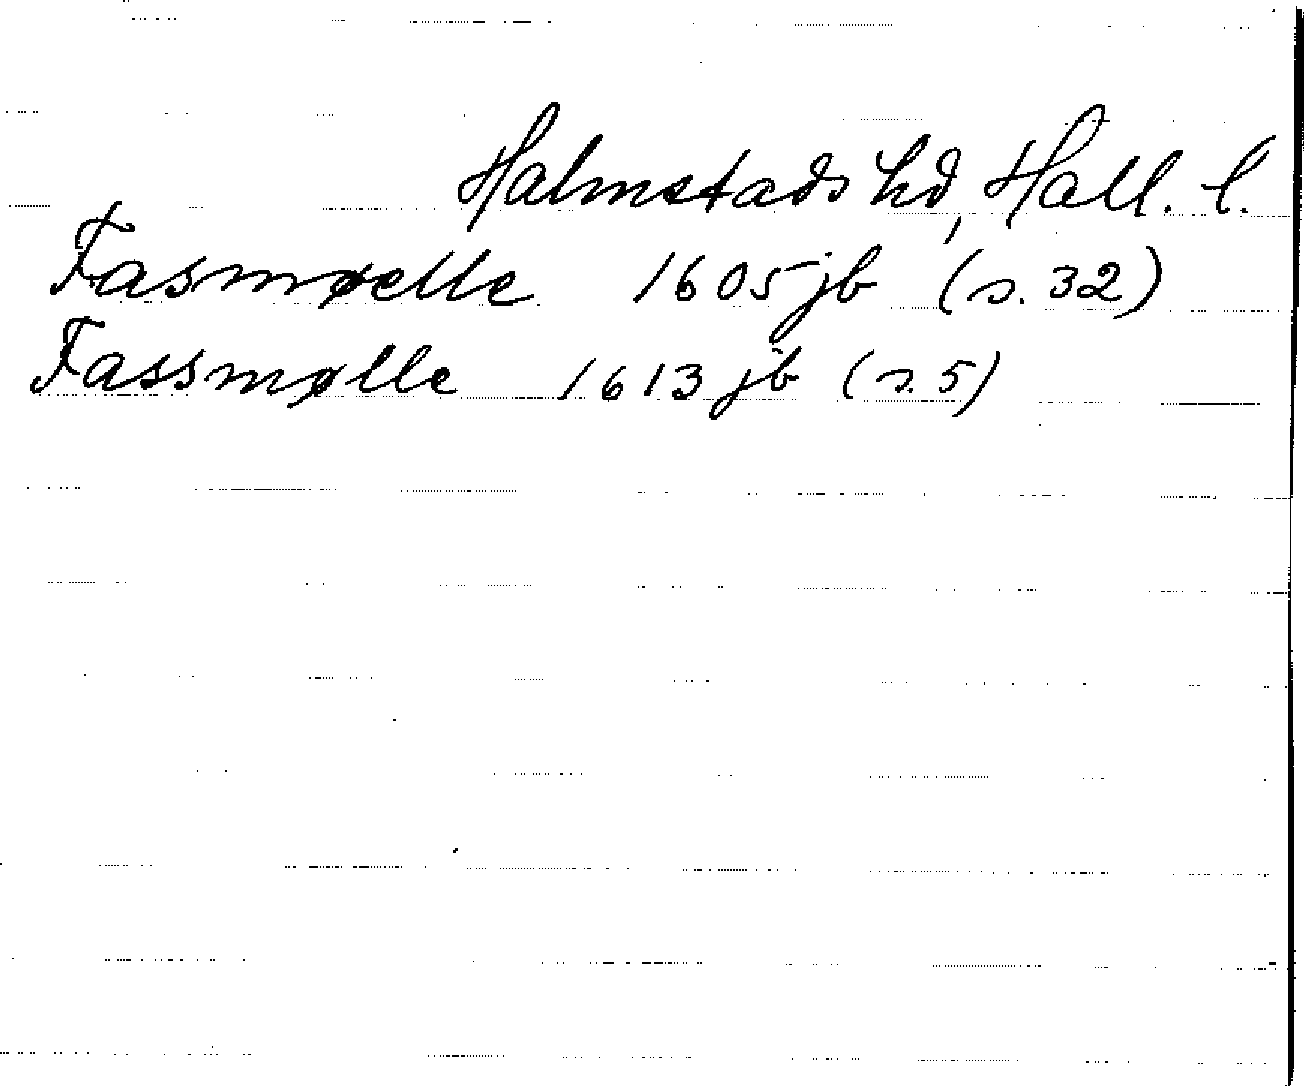 Halmstads hd, Hall. l.
Fasmøelle 1605 jb (s. 32)
Fassmølle 1613 jb (s. 5)